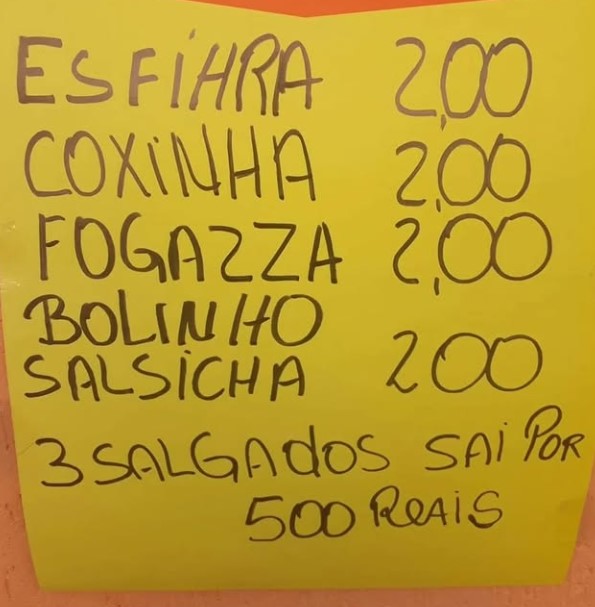 ESFIHRA 2,00
COXINHA 2,00
FOGAZZA 2,00
BOLINHO
SALSICHA 200
3 SALGAdOS SAI POR
500 REAIS